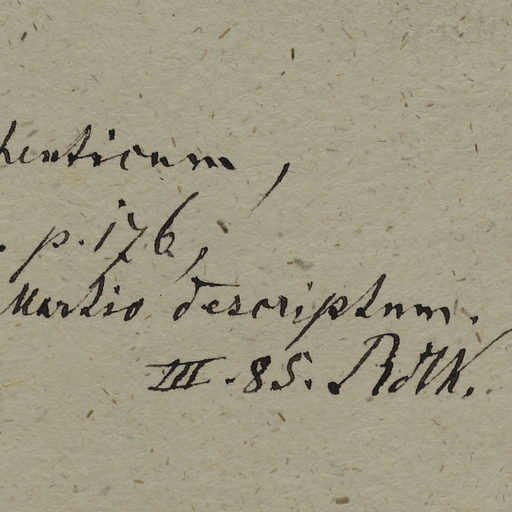 henticum,
. p. 176,
Martio descriptum.
III. 85. Röll.